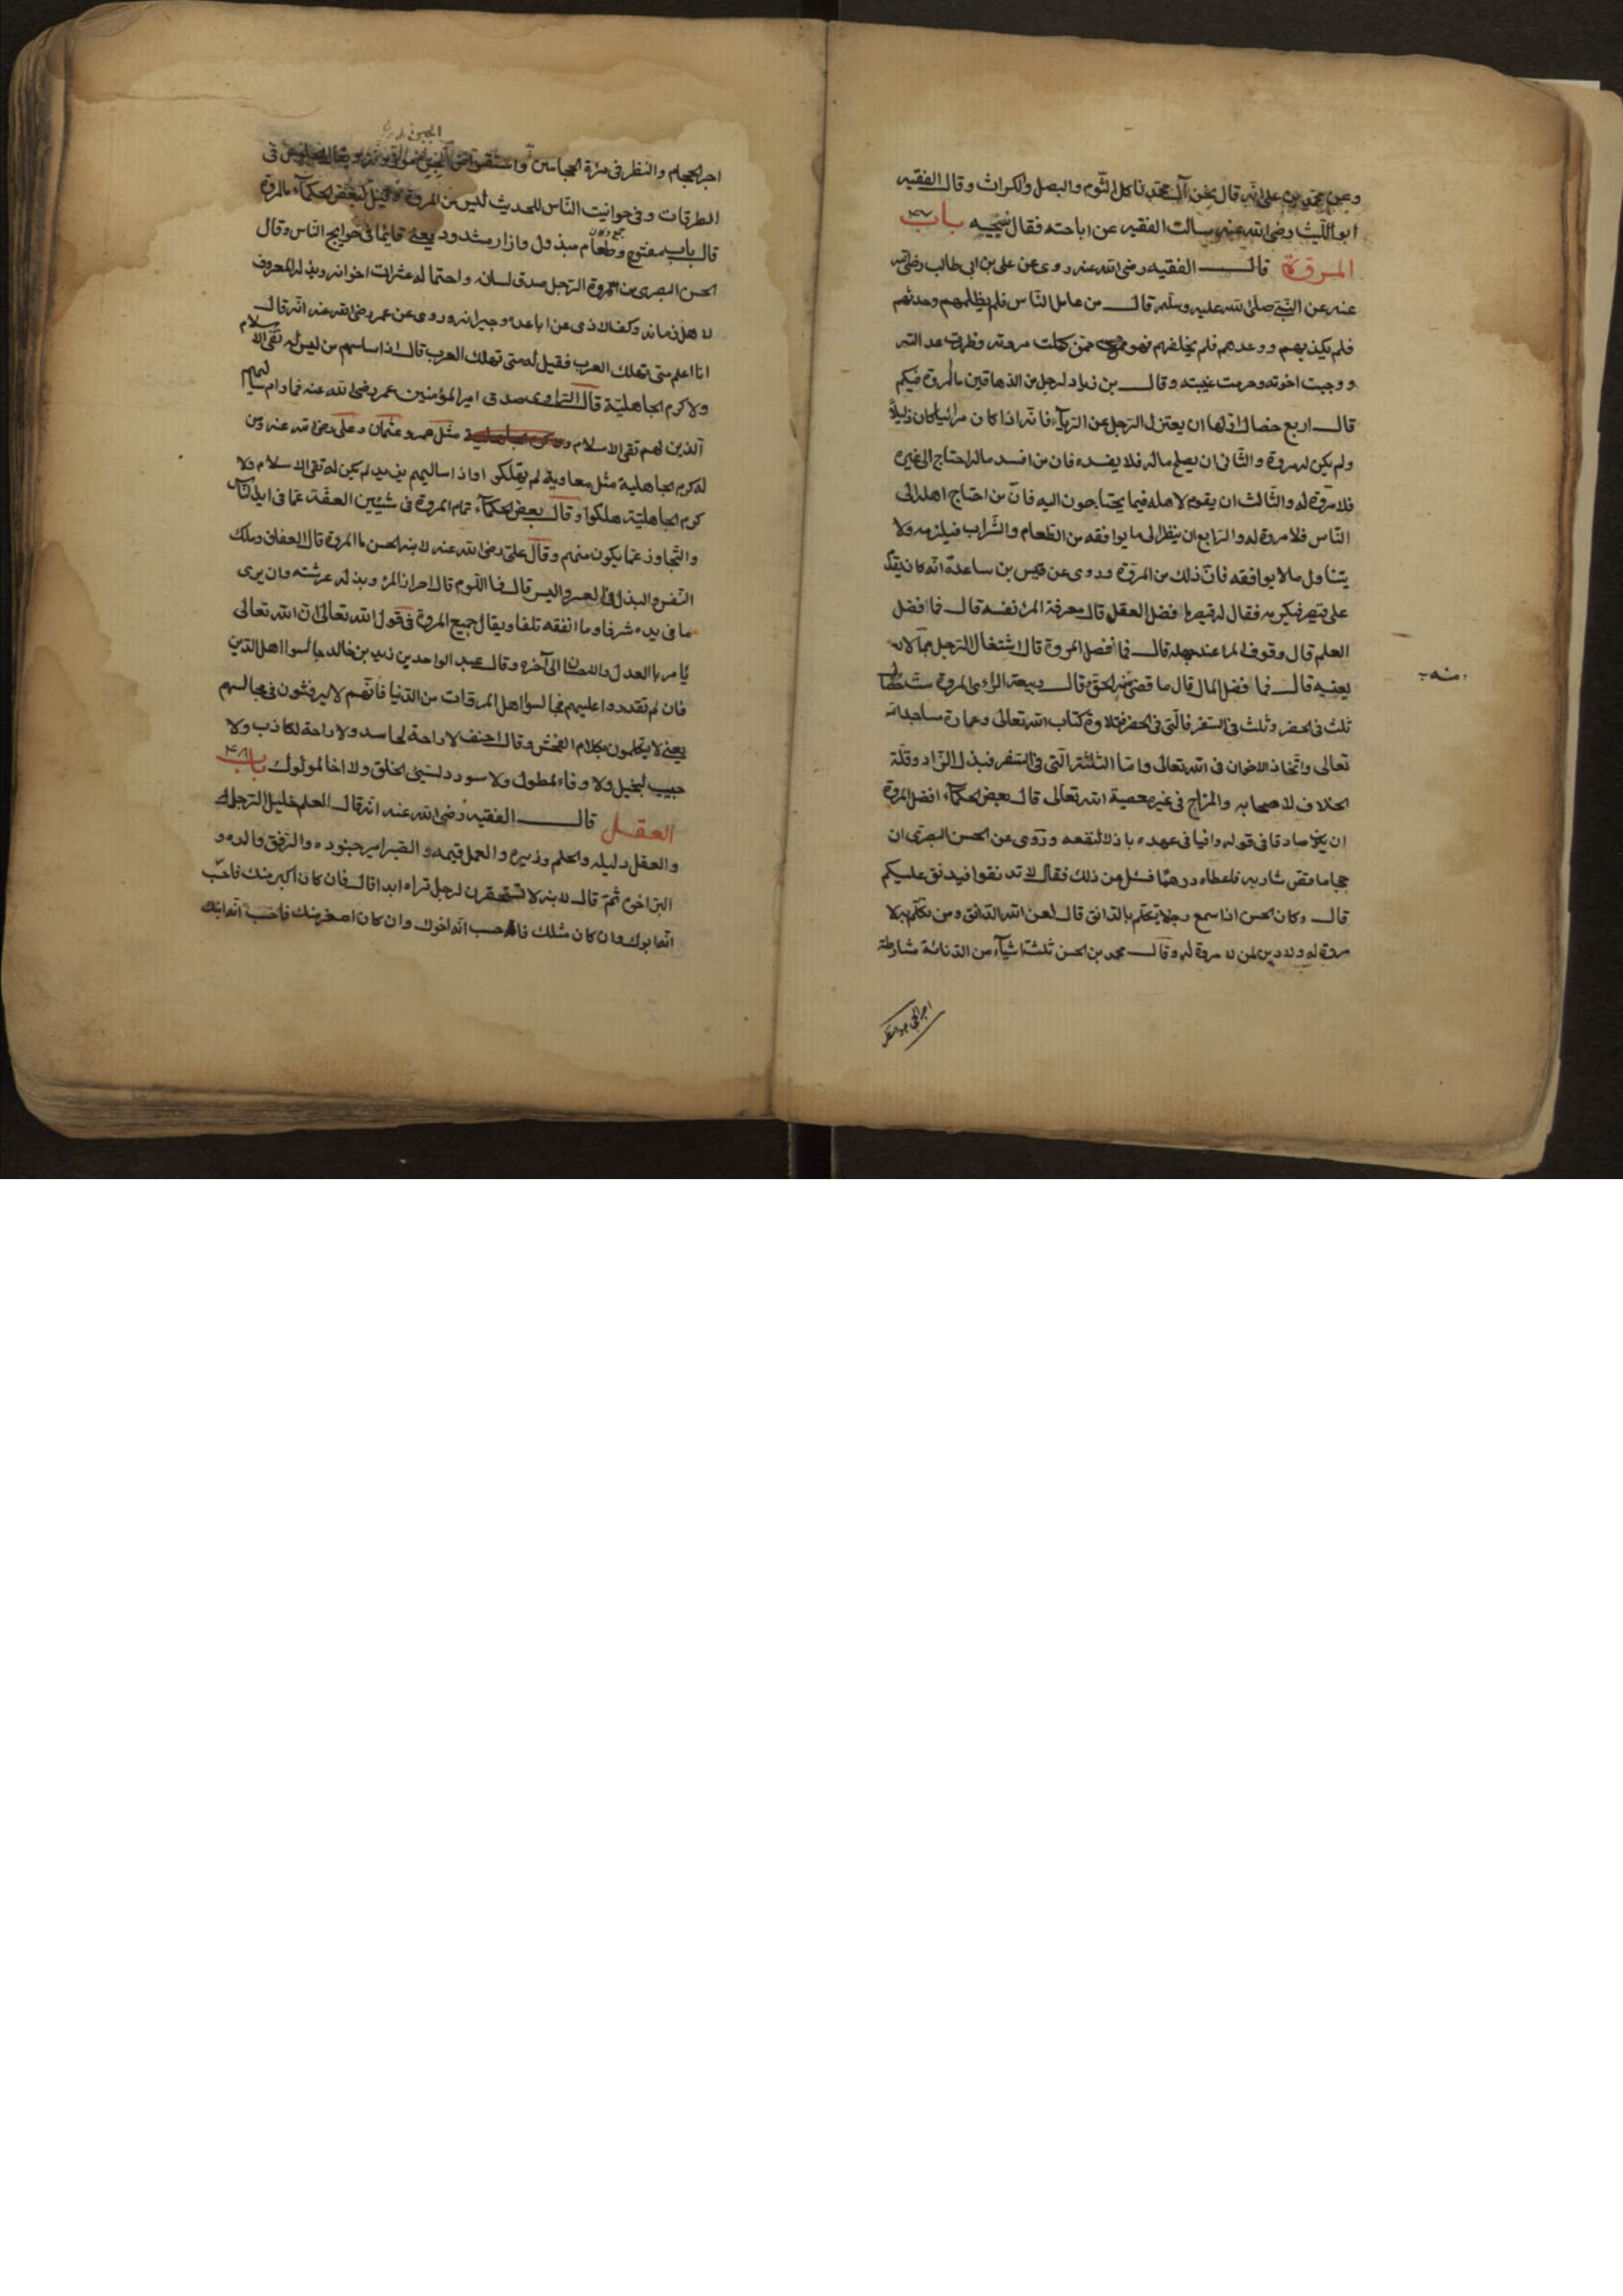 وعن محمد بن على انه قال نحن آل محمد ناكل الثوم والبصل والكراث وقال الفقيه
ابو الليث رضى الله عنه سالت الفقيه عن اباحته فقال باب ٤٧
المروّة قال الفقيه رضى الله عنه روى عن على بن ابى طالب رضى الله
عنه عن النبى صلى الله عليه وسلم قال من عامل الناس فلم يظلمهم وحدثهم
فلم يكذبهم ووعدهم فلم يخلفهم فهو ممن كملت مروته وظهرت عدالته
ووجبت اخوته وحرمت غيبته وقال بن زياد لرجل من الدهاقين ما المروة فيكم
قال اربع خصال اولها ان يعتزل الرجل عن الريآء فانه اذا كان مرائيا كان ذليلا
ولم يكن له مروة والثانى ان يصلح ماله فلا يفسده فان من افسد ماله احتاج الى غيره
فلا مروّة له والثالث ان يقوم لاهله فيما يحتاجون اليه فانّ من احتاج اهله الى
النّاس فلا مروة له والرابع ان ينظر الى ما يوافقه من الطعام والشراب فيلزمه ولا
يتناول ما لا يوافقه فانّ ذلك من المروّة وروى عن قيس بن ساعدة انّه كان يفد
على قيصر فيكرمه فقال له قيصر ما افضل العقل قال معرفة المرء نفسه قال فما افضل
العلم قال وقوف المرء عند جهله قال فما افضل المروة قال اشتغال الرجل
يعنيه قال فما افضل المال قال ما قضى منه الحق وقال ربيعة الراءى المروة ست خصال
منه
ثلث فى الحضر وثلث فى السفر فالّتى فى الحضر فتلاوة كتاب الله تعالى وعمارة مساجد الله
تعالى واتّخاذ الاخوان فى الله تعالى وامّا الثلثة الّتى فى السفر فبذل الزّاد وقلّة
الخلاف لاصحابه والمزاح فى غير معصية الله تعالى قال بعض الحكمآء افضل المروة
ان يكون صادقا فى قوله وافيا فى عهده باذلا لنفعه وروى عن الحسن البصرى ان
حجاما قص شاربه فاعطاه درهما فسئل عن ذلك فقال لا تدنقوا فيدنق عليكم
قال وكان الحسن اذا سمع رجلا يتكلّم بالدّانق قال لعن الله الدّانق ومن تكلّم به لا
مروة له ولا دين لمن لا مروة له وقال محمد بن الحسن ثلثة اشيآء من الدنائة مشارطة
اجر الحجام والنظر
اجر الحجام والنظر فى مرآة الحجامين واستقراض الخبز
الطرقات وفى حوانيت النّاس للحديث ليس من المروة وقيل لبعض الحكمآء ما المروة
قال باب مفتوح وطعام مبذول وازار مشدود يعنى قايما فى حوايج الناس وقال
الحسن البصرى من مروة الرّجل صدق لسانه واحتماله عثرات اخوانه وبذله المعروف
لاهل زمانه وكفه الاذى عن اباعده وجيرانه وروى عن عمر رضى الله عنه انّه قال
انا اعلم متى تهلك العرب فقيل له متى تهلك العرب قال اذا ساسهم من ليس له تقى الاسلام
ولا كرم الجاهليّة قال الراوى صدق امير المؤمنين عمر رضى الله عنه فما دام ساسهم
الذين لهم تقى الاسلام مثل عمر وعثمان وعلى رضى الله عنه ومن
له كرم الجاهلية مثل معاوية لم يهلكوا واذا يزيد لم يكن له تقى الاسلام ولا
كرم الجاهليّة هلكوا وقال بعض الحكمآء تمام المروة فى شيئين العفّة عمّا فى ايدى النّاس
والتّجاوز عمّا يكون منهم وقال علىّ رضى الله عنه لابنه الحسن ما المروة قال العفاف وملك
النّفس والبذل فى العسر واليسر قال فما اللّوم قال احراز المرء وبذله عرشته وان يرى
ما فى يده شرفا وما انفقه تلفا ويقال جميع المروة فى قول الله تعالى انّ الله تعالى
يأمر بالعدل والاحسان الى آخره وقال عبد الواحد بن زيد بن خالد جالسوا اهل الدّين
فان لم تقدروا عليهم فجالسوا اهل المروّات من الدّنيا فانّهم لا يرفثون فى مجالسهم
يعنى لا يتكلمون بكلام الفحش وقال احنف لا راحة لحاسد ولا راحة لكاذب ولا
حبيب لبخيل ولا وفاء لمطول ولا سودد لسيّئ الخلق ولا اخا لمولوك باب ٤٨
العقل قال الفقيه رضى الله عنه انّه قال العلم خليل الرّجل
والعقل دليله والحلم وزيره والعمل قيّمه والصّبر امير جنوده والرّفق والده و
البرّ اخوه ثمّ قال لابنه لا تستحقرنّ لرجل تراه ابدا قال فان كان اكبر منك فاحسب
انّه ابوك وان كان مثلك فاحسب انّه اخوك وان كان اصغر منك فاحسب انّه ابنك